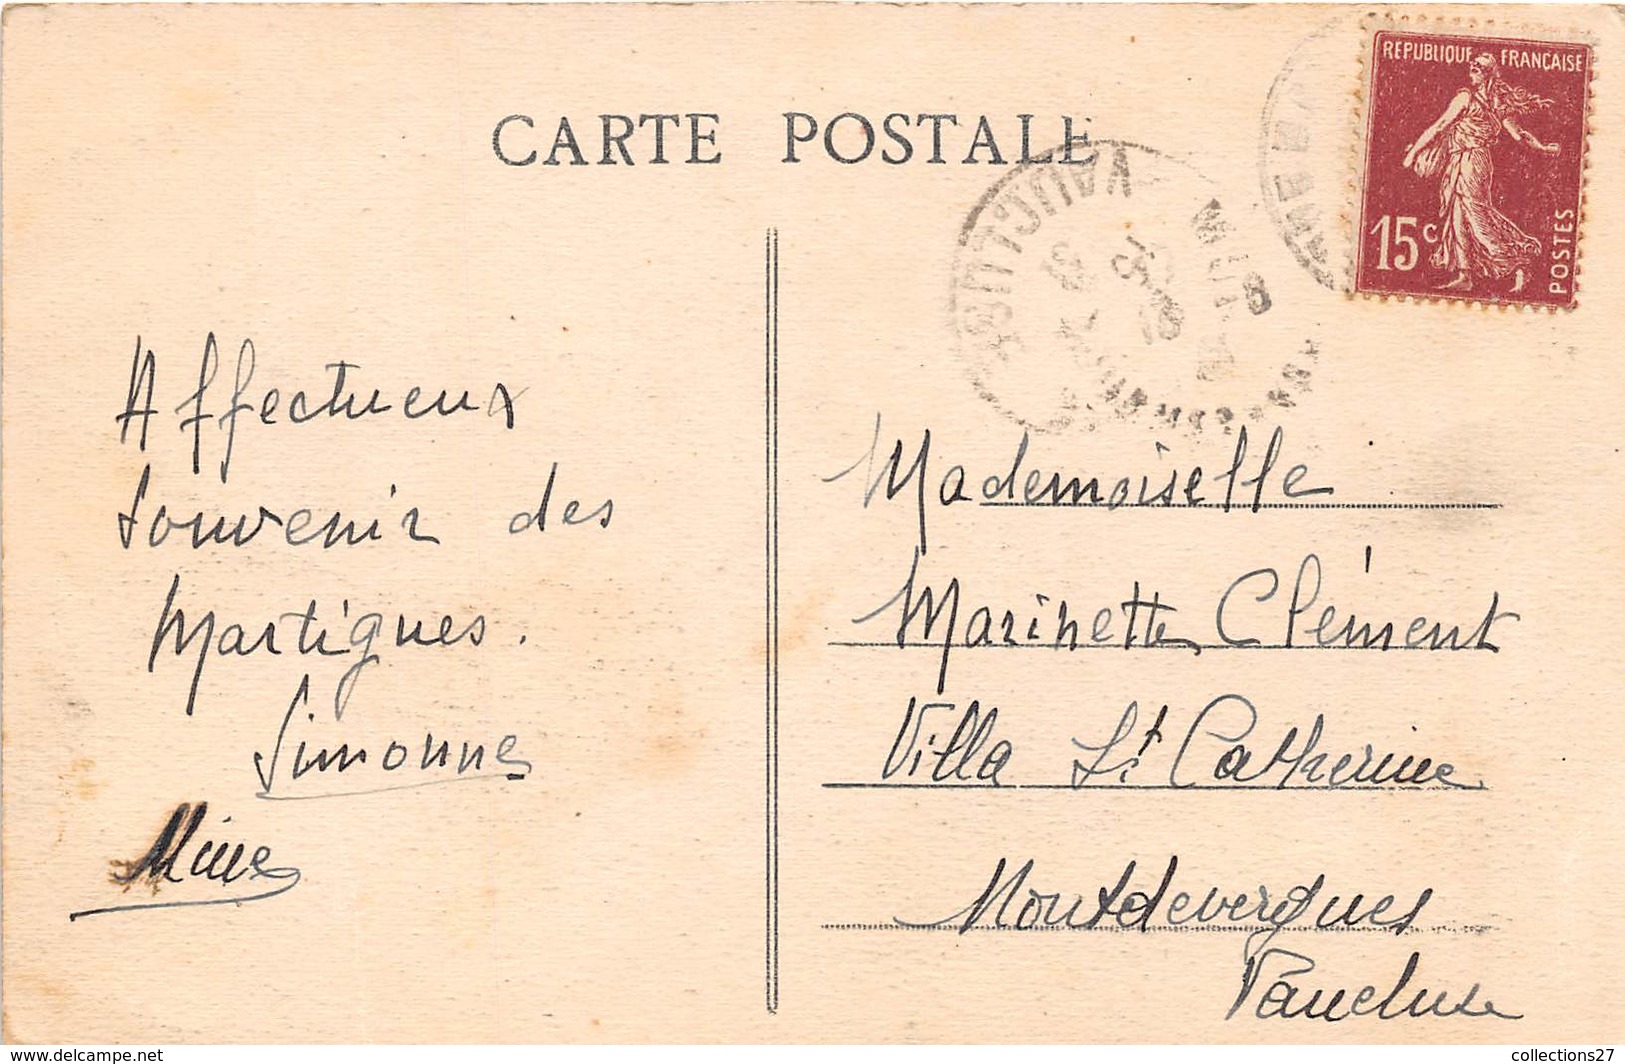 CARTE POSTALE
RÉPUBLIQUE FRANÇAISE
15c
POSTES
VAUCLUSE
Affectueux
souvenir des
Martigues.
Simonne
Mademoiselle
Marinette Clément
Villa St Catherine
Montdevergues
Vaucluse
collections27
www.delcampe.net